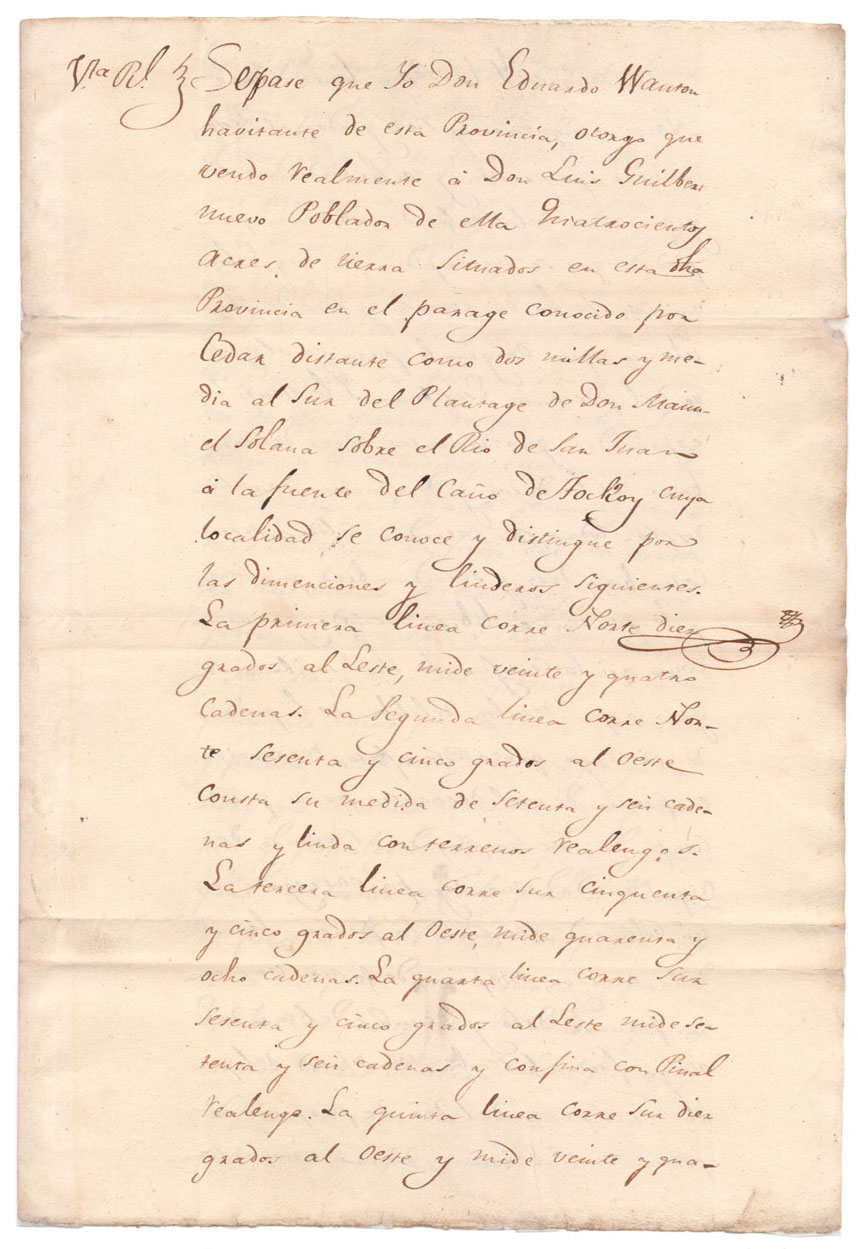 V.ta Rl. Sepase que Yo Don Eduardo Wanton
havitante de esta Provincia, otorgo que
vendo realmente á Don Luis Guilber
nuevo Poblador de ella Quatrocientos
Acres de tierra situados en esta dha
Provincia en el parage conocido por
Cedar distante como dos millas y me-
dia al Sur del Plantage de Don Manu-
el Solana sobre el Rio de San Juan
á la fuente del Caño de cuya
localidad se conoce y distingue por
las dimenciones y linderos siguientes.
La primera linea corre Norte diez
grados al Leste, mide veinte y quatro
cadenas. La Segunda linea corre Nor-
te sesenta y cinco grados al Oeste
Consta su medida de setenta y seis cade-
nas y linda con terrenos realengos.
La tercera linea corre Sur cinquenta
y cinco grados al Oeste, mide quarenta y
ocho cadenas. La quarta linea corre Sur
sesenta y cinco grados al Leste mide se-
tenta y seis cadenas y confina con Pinal
realengo. La quinta linea corre Sur diez
grados al Oeste y mide veinte y qua-